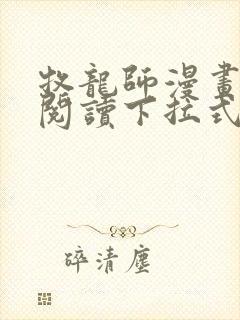 牧龍師漫畫
閱讀下拉式
碎清塵